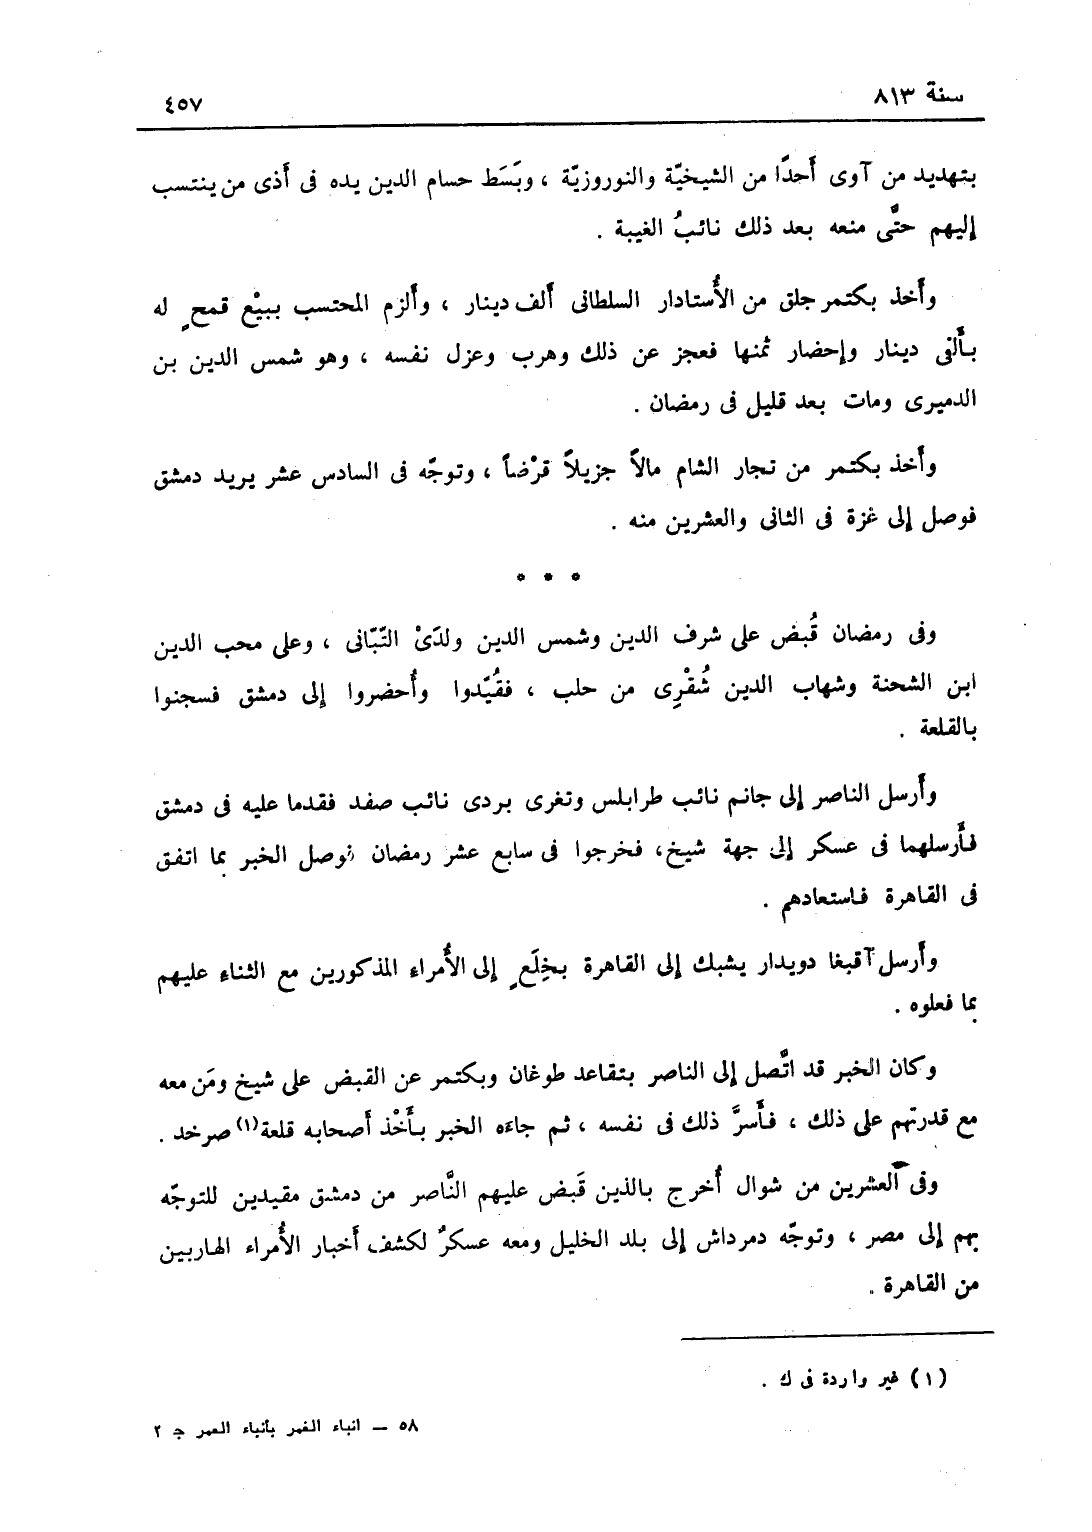 سنة ٨١٣
٤٥٧
بتهديد من آوى أَحدًا من الشيخيّة والنوروزيّة ، وبَسَط حسام الدين يده فى أَذى من ينتسب
إليهم حتَّى منعه بعد ذلك نائبُ الغيبة .
وأَخذ بكتمر جلق من الأُستادار السلطانى أَلف دينار ، وأَلزم المحتسب ببيْع قمحٍ له
بأَلفى دينار وإحضار ثمنها فعجز عن ذلك وهرب وعزل نفسه ، وهو شمس الدين بن
الدميرى ومات بعد قليل فى رمضان .
وأَخذ بكتمر من تجار الشام مالاً جزيلاً قرْضاً ، وتوجّه فى السادس عشر يريد دمشق
فوصل إلى غزة فى الثانى والعشرين منه .
* * *
وفى رمضان قُبض على شرف الدين وشمس الدين ولدَىْ التّبّانى ، وعلى محب الدين
ابن الشحنة وشهاب الدين شُقْرِى من حلب ، فقُيّدوا وأُحضروا إلى دمشق فسجنوا
بالقلعة .
وأَرسل الناصر إلى جانم نائب طرابلس وتغرى بردى نائب صفد فقدما عليه فى دمشق
فأَرسلهما فى عسكر إلى جهة شيخ، فخرجوا فى سابع عشر رمضان فوصل الخبر بما اتفق
فى القاهرة فاستعادهم .
وأَرسل آقبغا دويدار يشبك إلى القاهرة بخِلَعٍ إلى الأُمراء المذكورين مع الثناء عليهم
بما فعلوه .
وكان الخبر قد اتَّصل إلى الناصر بتقاعد طوغان وبكتمر عن القبض على شيخ ومَن معه
مع قدرتهم على ذلك ، فأَسرَّ ذلك فى نفسه ، ثم جاءه الخبر بأَخْذ أَصحابه قلعة(١) صرخد .
وفى العشرين من شوال أُخرج بالذين قَبض عليهم النَّاصر من دمشق مقيدين للتوجّه
بهم إلى مصر ، وتوجّه دمرداش إلى بلد الخليل ومعه عسكرٌ لكشف أَخبار الأُمراء الهاربين
من القاهرة .
(١) غير واردة فى ك .
٥٨ – انباء الغمر بأنباء العمر ج ٢